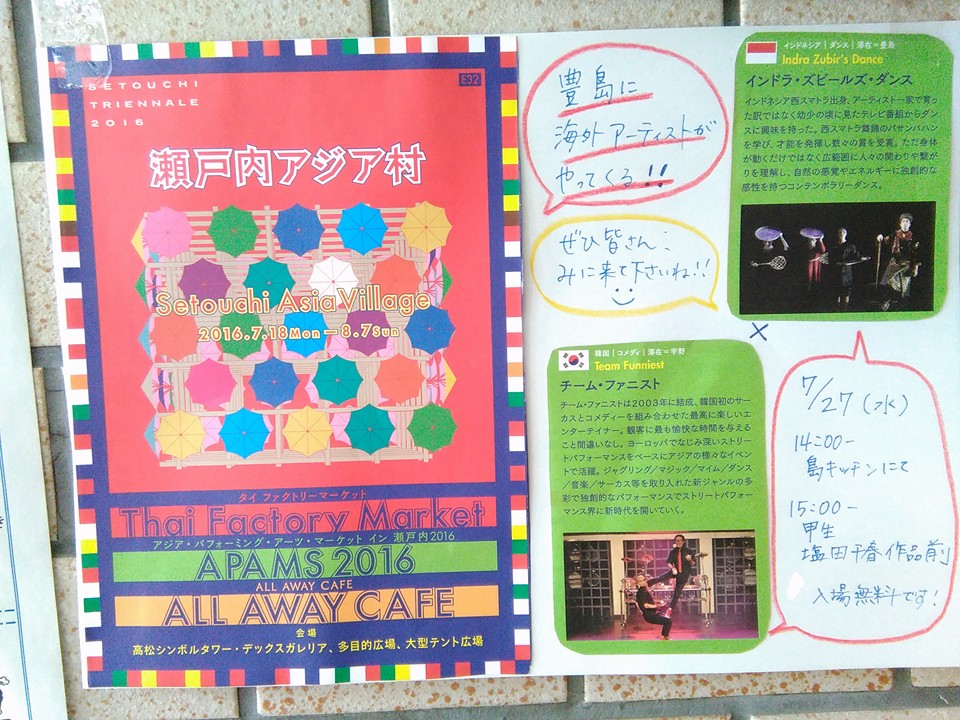 SETOUCHI
TRIENNALE
2016
E32
瀬戸内アジア村
Setouchi Asia Village
2016.7.18Mon–8.7Sun
タイ ファクトリーマーケット
Thai Factory Market
アジア・パフォーミング・アーツ・マーケット イン 瀬戸内2016
APAMS 2016
ALL AWAY CAFE
ALL AWAY CAFE
会場
高松シンボルタワー・デックスガレリア、多目的広場、大型テント広場
豊島に
海外アーティストが
やってくる!!
ぜひ皆さん:
みに来て下さいね!!
インドネシア|ダンス|滞在=豊島
Indra Zubir's Dance
インドラ・ズビールズ・ダンス
インドネシア西スマトラ出身、アーティスト一家で育っ
た訳ではなく幼少の頃に見たテレビ番組からダン
スに興味を持った。西スマトラ舞踊のパサンバハン
を学び、才能を発揮し数々の賞を受賞。ただ身体
が動くだけではなく広範囲に人々の関わりや繋が
りを理解し、自然の感覚やエネルギーに独創的な
感性を持つコンテンポラリーダンス。
×
韓国|コメディ|滞在=宇野
Team Funniest
チーム・ファニスト
チーム・ファニストは2003年に結成、韓国初のサー
カスとコメディーを組み合わせた最高に楽しいエ
ンターテイナー。観客に最も愉快な時間を与える
こと間違いなし。ヨーロッパでなじみ深いストリー
トパフォーマンスをベースにアジアの様々なイベン
トで活躍。ジャグリング/マジック/マイム/ダンス
/音楽/サーカス等を取り入れた新ジャンルの多
彩で独創的なパフォーマンスでストリートパフォー
マンス界に新時代を開いていく。
7/27(水)
14:00-
島キッチンにて
15:00-
甲生
塩田千春作品前
入場無料です!